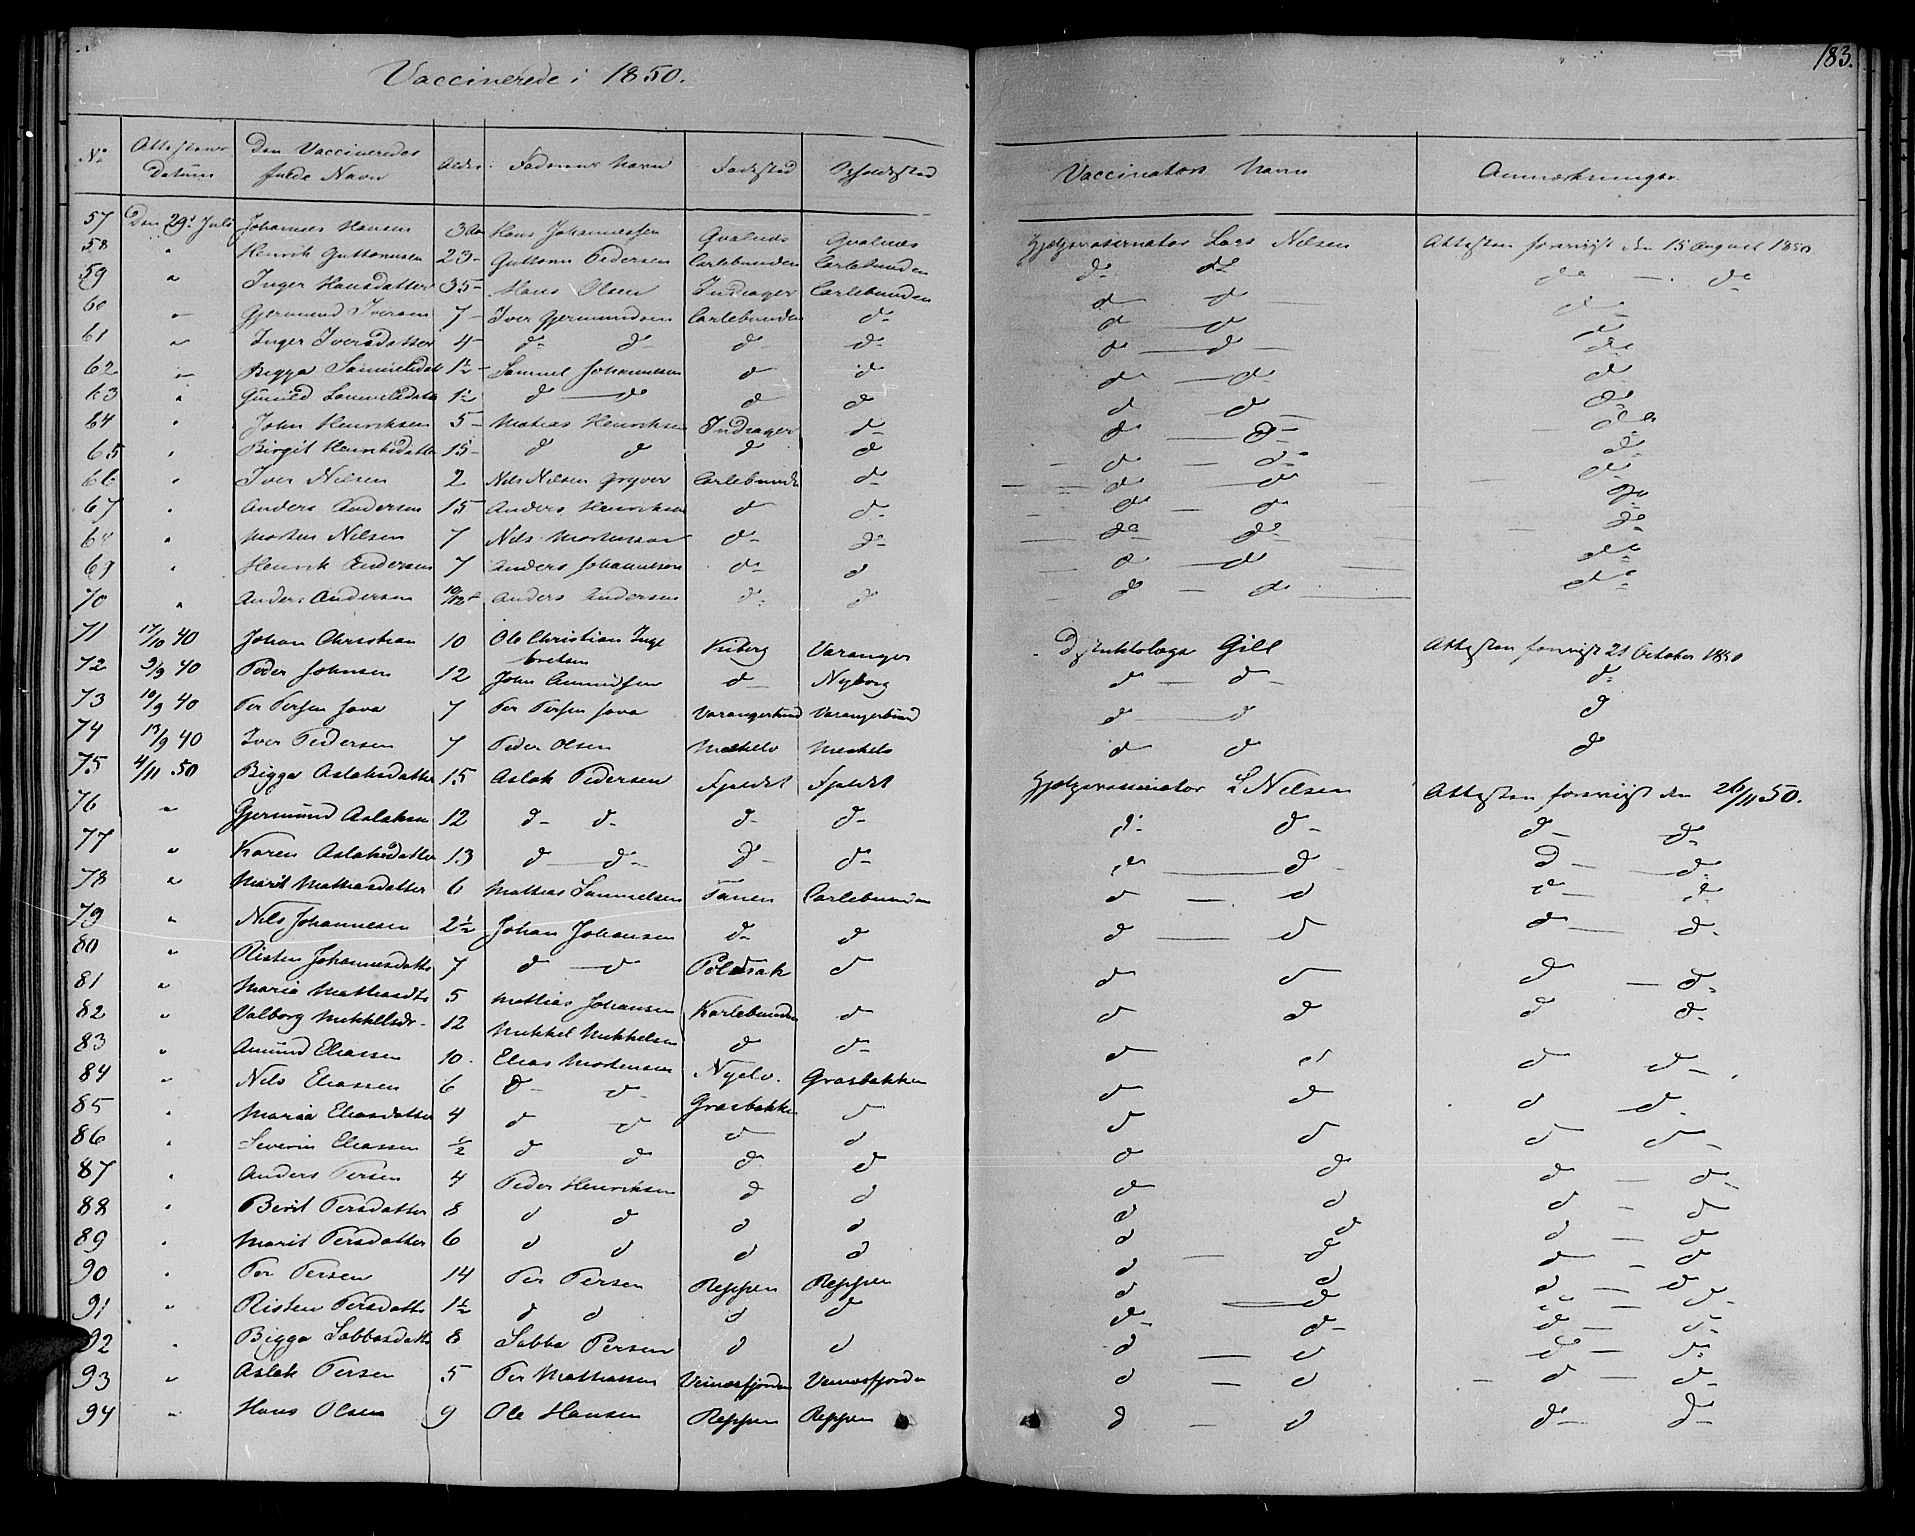 183.
Vaccinerede i 1850.
No Attestens Datum Den Vaccineredes fulde Navn Alder Faderens Navn Fødested Opholdsted Vaccinators Navn Anmærkninger
57 Den 29d Juli Johannes Hansen 3 Hans Johannessen Qvalnæs Qvalnæs Hjelpevaccinator Lars Nilsen Attesten foreviist den 15 August 1850
58 " Henrik Guttormsen 23 - Guttorm Pedersen Carlebunden Carlebunden do do do - do
59 " Inger Hansdatter 35 - Hans Olsen Indrager Carlebunden d d d
60 " Gjermund Iversen 7 - Iver Gjermundsen Carlebunden do d d d
61 " Inger Iversdatter 4 - do do do do d d do
62 " Bigga Samuelsdat 1½ - Samuel Johannesen d d d d d
63 " Gunild Samuelsdatt 1½ d d d d d d d
64 " John Henriksen 5 - Mathias Henriksen Indrager do d do do
65 " Birgit Henriksdatter 15 - d d d d d do do
66 " Iver Nilsen 2 Nils Nilsen Gryver Carlebunden do d d do
67 " Anders Andersen 15 Anders Henriksen d do d d do
68 " Morten Nilsen 7 Nils Mortensen do do do do do
69 " Henrik Andersen 7 Anders Johannesen do d d d do
70 " Anders Andersen 10/12 Anders Andersen do do d do do
71 17/10 40 Johan Christian 10 Ole Christian Inge
bretsen Kiberg Varanger Distriktslæge Gill Attesten foreviist 21 October 1850
72 9/9 40 Peder Johnsen 12 John Amundsen d Nyborg d d do
73 10/9 40 Per Persen Java 7 Per Persen Java Varangerbund Varangerbund d d d
74 13/9 40 Iver Pedersen 7 Peder Olsen Meskelv Meskelv d d d
75 4/11 50 Bigga Aslaksdatter 15 Aslak Pedersen Fjeldet Fjeldet Hjelpevaccinator L Nilsen Attesten foreviist den 26/11 50.
76 " Gjermund Aslaksen 12 do do do do do do do do
77 " Karen Aslaksdatter 13 d do do do d d d d
78 " Marit Mathiasdatter 6 Mathias Samuelsen Tanen Carlebunden d d d d
79 " Nils Johannesen 2½ Johan Johansen do d d d d d
80 " Risten Johannesdatter 7 d d Polmak d d d d d
81 " Maria Mathiasdtr 5 Mathias Johansen Karlebunden d d d d d
82 " Valborg Mikkelsdr. 12 Mikkel Mikkelsen d do d d d do
83 " Amund Eliassen 10. Elias Mortensen Nyelv. Græsbakken d d d do
84 " Nils Eliassen 6 do do Græsbakken d d d d d
85 " Maria Eliasdatter 4 d d d d d d d d
86 " Severin Eliassen ½ d d d d d d d d
87 " Anders Persen 4 Peder Henriksen d d d d d d
88 " Berit Persdatter 8 d d d d d d d d
89 " Marit Persdatter 6 d d d d d d d d
90 " Per Persen 14 Per Persen Reppen Reppen d d d d
91 " Risten Persdatter 1½ d d d d do do d d
92 " Bigga Sabbasdatter 8 Sabba Persen d d d d d d
93 " Aslak Persen 5 Per Mathiassen Veinesfjorden Veinesfjorden d d d d
94 " Hans Olsen 9 Ole Hansen Reppen Reppen d d do do